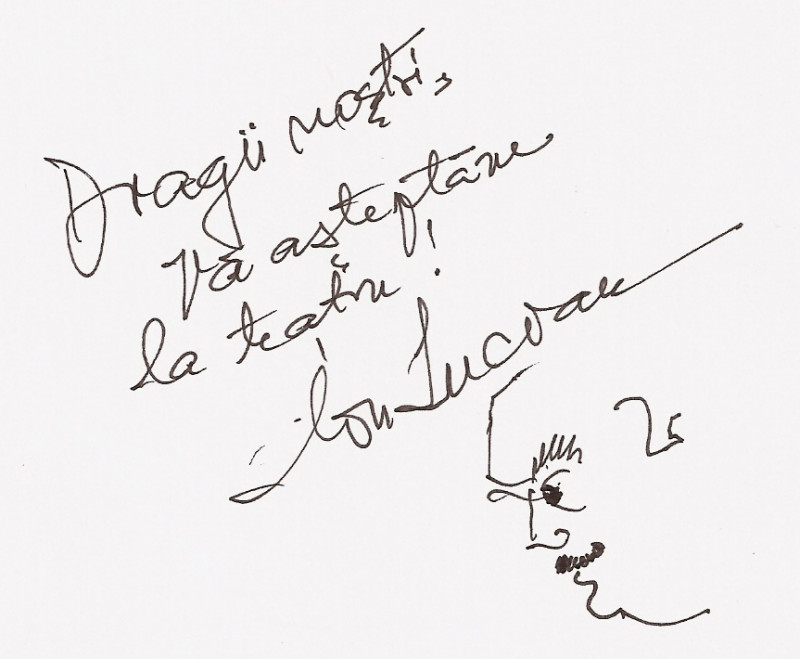 Dragii noștri,
Vă așteptăm
la teatru!
Ion Lucian
25